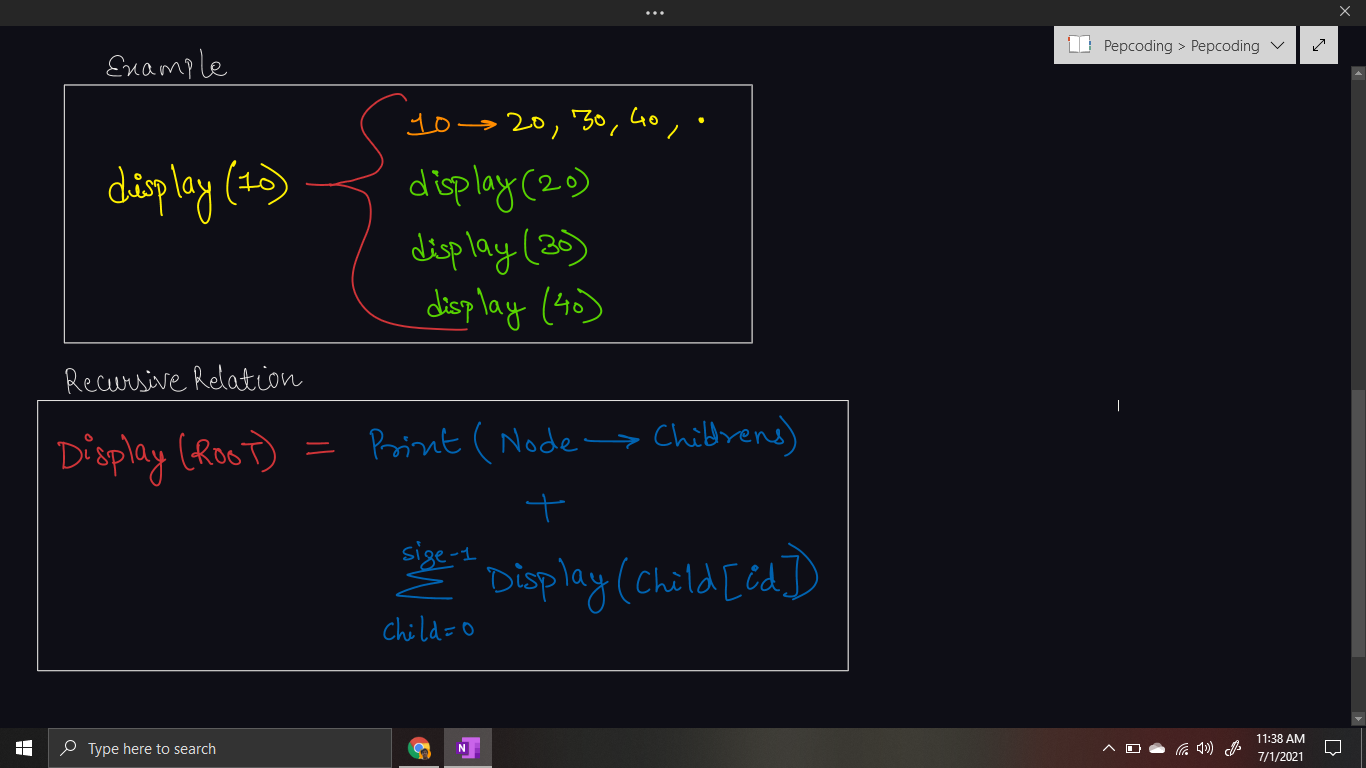 Pepcoding > Pepcoding
Example
10 → 20, 30, 40, .
display(10)
display(20)
display(30)
display (40)
Recursive Relation
Display(ROOT) = Print (Node → Childrens)
+
size-1
∑ Display(Child[id])
Child=0
Type here to search
N
11:38 AM
7/1/2021